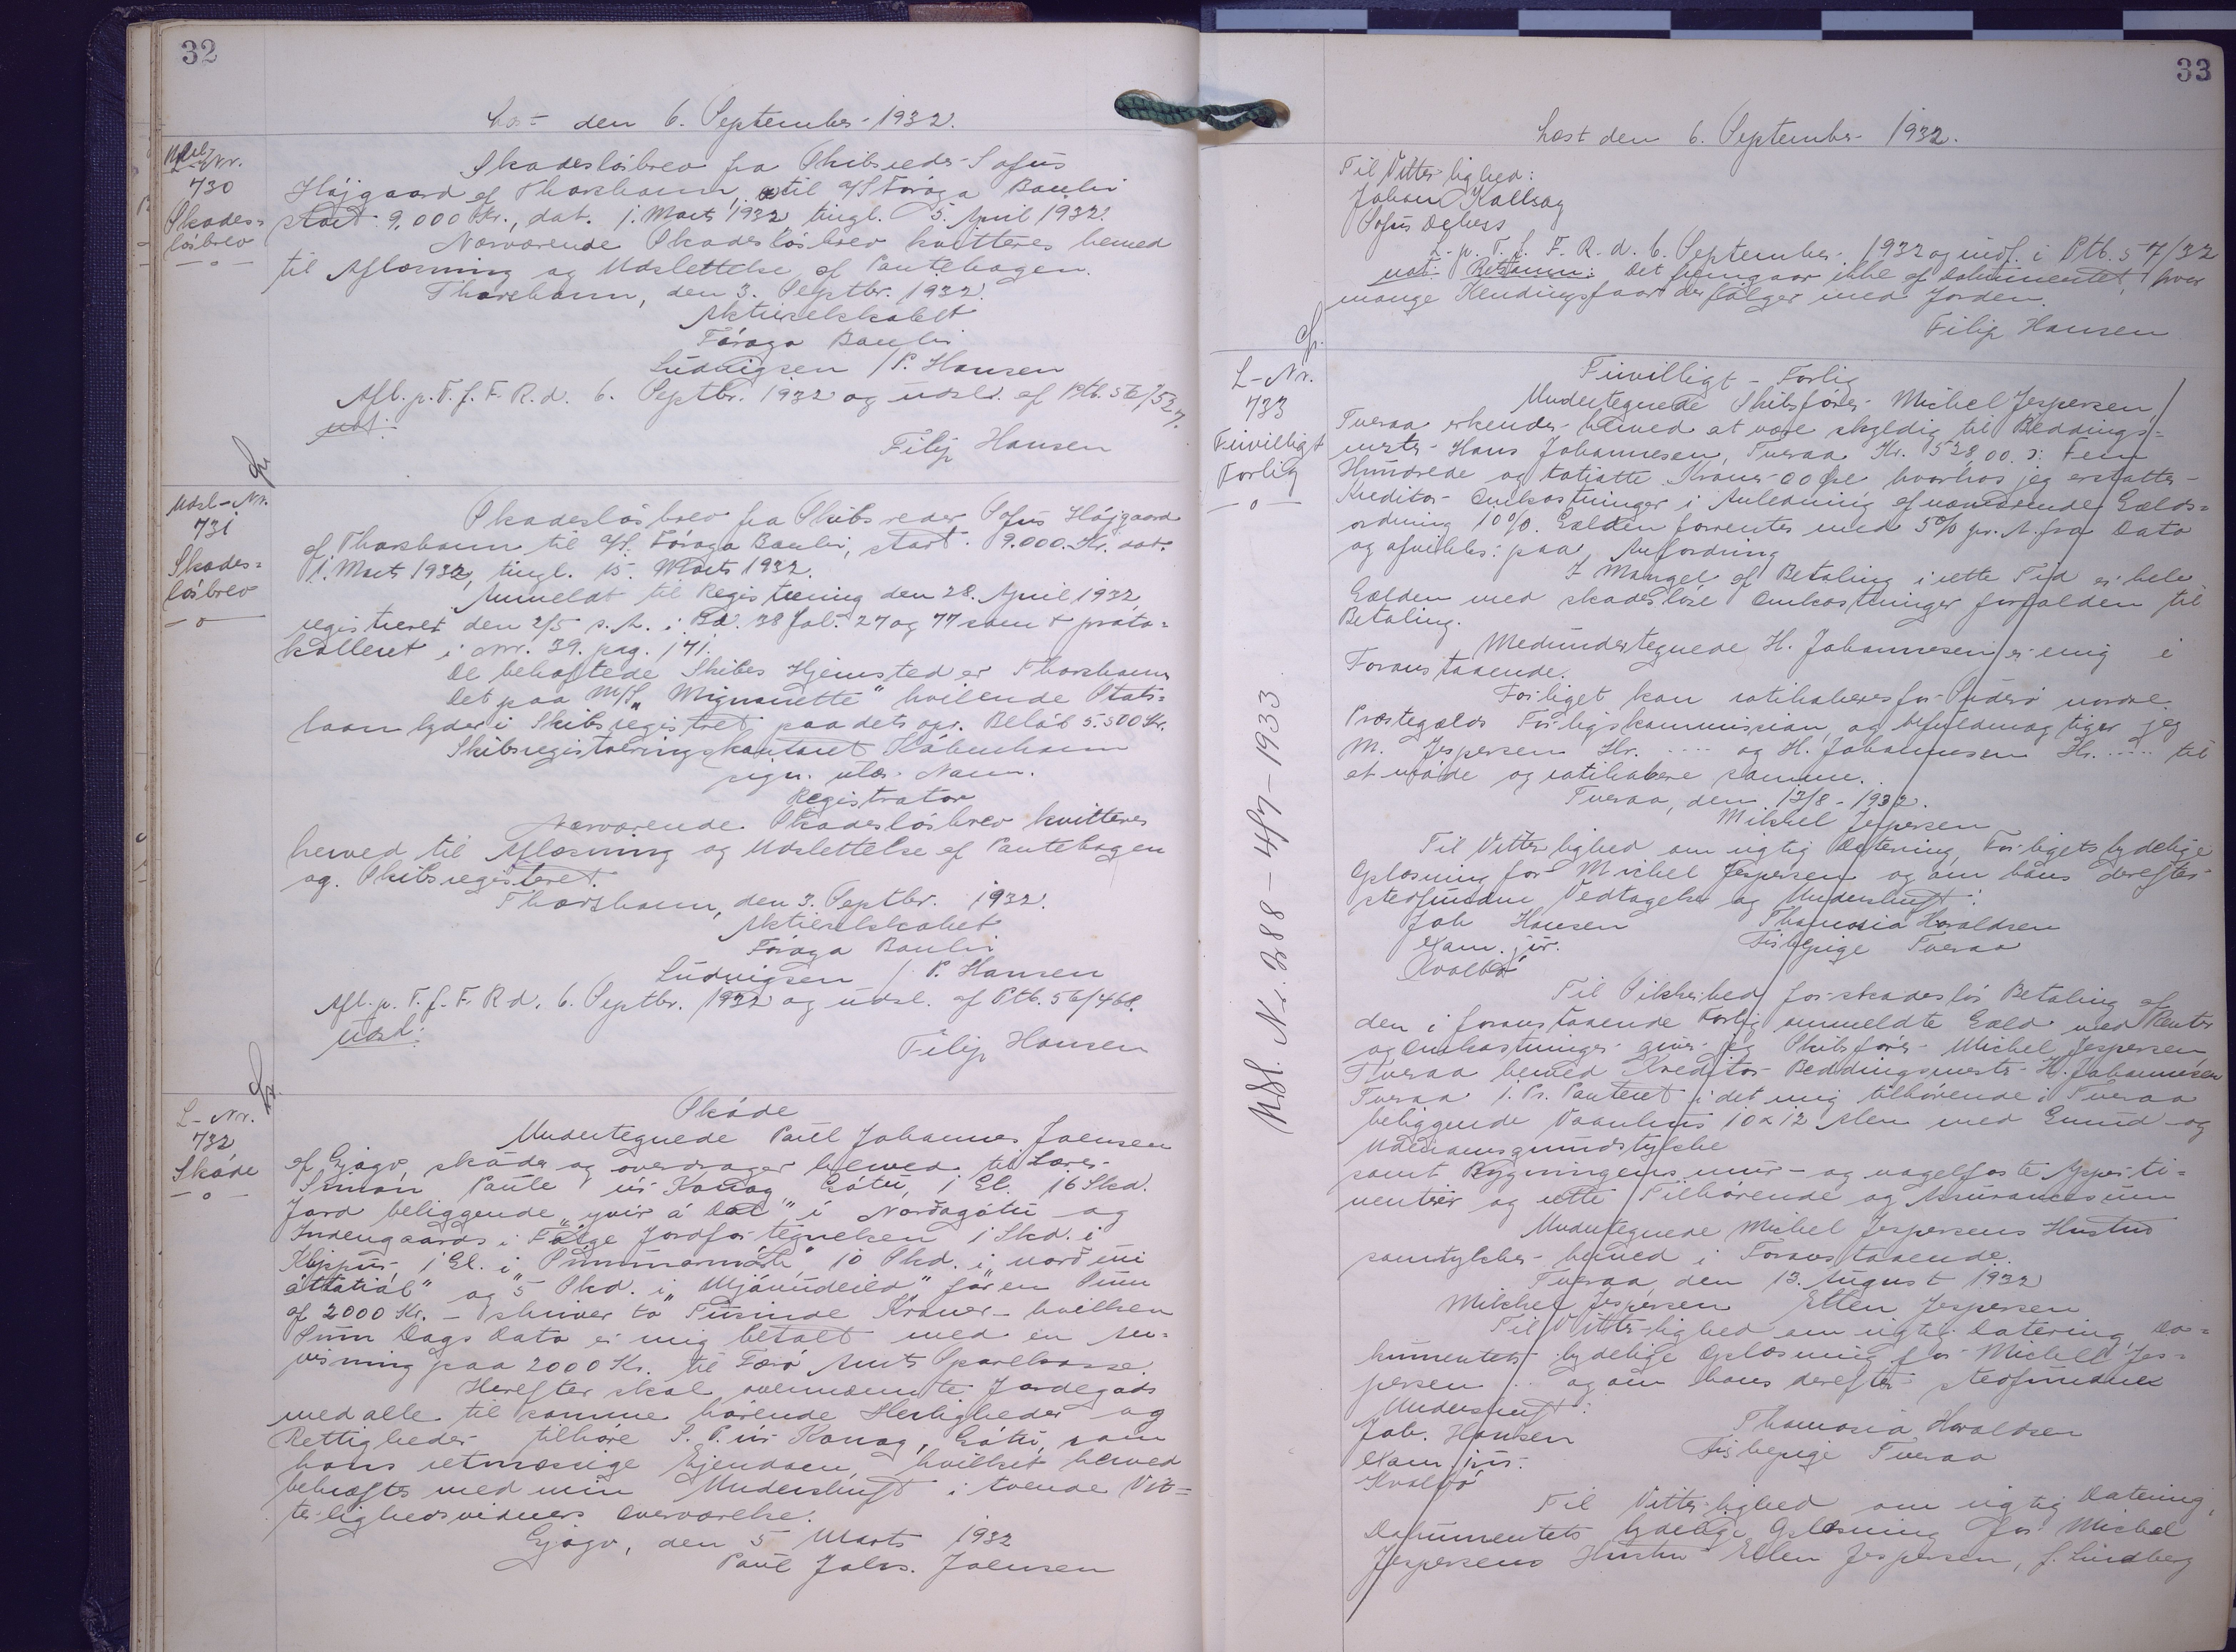 32
Læst den 6. September 1932.
Udsl-Nr.
730
Skades=
løsbrev
Skadesløsbrev fra Skibsreder Sofus
Højgaard af Thorshavn, til A/S Føroya Banki
stort 9.000 Kr., dat. 1. Marts 1932 tingl. 5. April 1932.
Nærværende Skadesløsbrev kvitteres herved
til Aflæsning og Udslettelse af Pantebogen.
Thorshavn, den 3. Septbr. 1932.
Aktieselskabet
Føroya Banki
Ludvigsen / P. Hansen
Afl. p. T. f. F. R. d. 6. Septbr. 1932 og udsl. af Ptb. 56/527.
udt:
Filip Hansen
Udsl-Nr.
731
Skades=
løsbrev
Skadesløsbrev fra Skibsreder Sofus Højgaard
af Thorshavn til A/S. Føroya Banki, stort 9.000. Kr. dat.
1. Marts 1932, tingl. 15. Marts 1932.
Anmeldt til Registrering den 28. April 1932,
registreret den 2/5 s. A. i Bd. 38 fol. 27 og 77 samt proto=
kolleret i Nr. 39. pag. 171.
De behæftede Skibes Hjemsted er Thorshavn
Det paa M/S „Mignonette" hvilende Stats=
laan lyder i Skibsregistret paa dets opr. Beløb 5.500 Kr.
Skibsregistreringskontoret København
sign. ulæs. Navn.
Registrator
Nærværende Skadesløsbrev kvitteres
herved til Aflæsning og Udslettelse af Pantebogen
og Skibsregisteret.
Thorshavn, den 3. Septbr. 1932.
Aktieselskabet
Føroya Banki
Ludvigsen / P. Hansen
Afl. p. T. f. F. R d. 6. Septbr. 1932 og udsl. af Ptb. 56/468.
Udsl:
Filip Hansen
L-Nr.
732
Skøde
Skøde
Undertegnede Paul Johannes Joensen
af Gjógv, skøder og overdrager herved til Lærer
Simon Paule úr Konoy, Gøtu, 1 Gl. 16 Skd.
Jord beliggende „yvir á Dal" i Norðagøtu og
Indengaards i Følge Jordfortegnelsen 1 Skd. i
Klippur, 1 Gl. i 10 Skd. i norð uni
og 5 Skd. i for en Sum
af 2000 Kr. – skriver to Tusinde Kroner – hvilken
Sum Dags Dato er mig betalt med en An=
visning paa 2000 Kr. til Færø Amts Sparekasse.
Herefter skal ovennævnte Jordegods
med alle til samme hørende Herligheder og
Rettigheder tilhøre S. P. úr Konoy, Gøtu, som
hans retmæssige Ejendom, hvilket herved
bekræftes med min Underskrift i tvende Vit=
terlighedsvidners Overværelse.
Gjógv, den 5 Marts 1932
Paul Johs. Joensen
33
Læst den 6. September 1932.
Til Vitterlighed:
Johan Kallsoy
Sofus Debess
L. p. T. f. F. R. d. 6. September 1932 og indf. i Ptb. 57/32
udt: Retsanm: Det fremgaar ikke af Dokumentet, hvor
mange Kendingsfaar der følger med Jorden.
Filip Hansen
L-Nr.
733
Frivilligt
Forlig
Udsl. Nr. 388 – 4/7 – 1933
Frivilligt – Forlig
Undertegnede Skibsfører Michel Jespersen,
Tveraa erkender herved at være skyldig til Beddings=
mester Hans Johannesen, Tveraa Kr. 528,00 ɔ: Fem
Hundrede og otteiotte Kroner 00 Øre hvorhos jeg erstatter
Kreditor Omkostninger i Anledning af nærværende Gælds=
ordning 10%. Gælden forrentes med 5% pr. A. fra Dato
og afvikles: paa Anfordring
I Mangel af Betaling i rette Tid er hele
Gælden med skadesløse Omkostninger forfalden til
Betaling.
Medundertegnede H. Johannesen er enig i
Foranstaaende.
Forliget kan ratihaberes for Suderø nordre
Præstegælds Forligskommission, og befuldmægtiger jeg
M. Jespersen Hr. ..... og H. Johannesen Hr. ..... til
at møde og ratihabere samme.
Tveraa, den 13/8 - 1932.
Mikkel Jespersen
Til Vitterlighed om rigtig Datering, Forligets lydelige
Oplæsning for Michel Jespersen og om hans derefter
stedfundne Vedtagelse og Underskrift:
Joh Hansen Thomasia Haraldsen
exam. jur. Tveraa
Kvalbø
Til Sikkerhed for skadesløs Betaling af
den i foranstaaende Forlig anmeldte Gæld med Renter
og Omkostninger giver jeg Skibsfører Michel Jespersen
Tveraa herved Kreditor Beddingsmester H. Johannesen
Tveraa 1. Pr. Panteret i det mig tilhørende i Tveraa
beliggende Vaanhus 10 x 12 Alen med Grund og
Udenomsgrundstykke
samt Bygningens mur- og nagelfaste Apperti=
nentier og rette Tilhørende og Assurancesum
Undertegnede Michel Jespersens Hustru
samtykker herved i Foranstaaende.
Tveraa den 13. August 1932
Mikkel Jespersen Ellen Jespersen
Til Vitterlighed om rigtig Datering, Do=
kumentets lydelige Oplæsning for Michel Jes=
persen .. og om hans derefter stedfundne
Underskrift:
Joh. Hansen Thomasia Haraldsen
exam jur. Tveraa
Kvalbø
Til Vitterlighed om rigtig Datering,
Dokumentets lydelige Oplæsning for Michel
Jespersens Hustru Ellen Jespersen, f. Lindberg